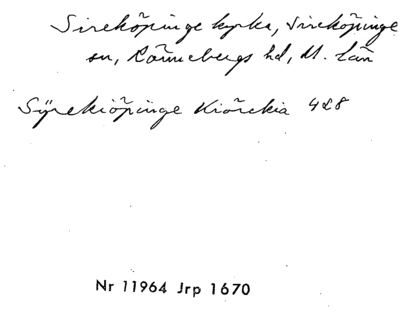 Sireköpinge kyrka, Sireköpinge
sn, Rönnebergs hd, M. län
Sÿrekiöpinge Kiörckia 428
Nr 11964 Jrp 1670